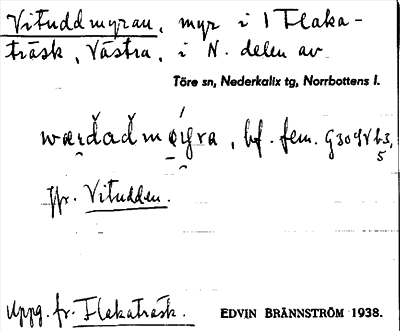 Vituddmyran, myr i 1 Flaka-
träsk, Västra, i N. delen av
Töre sn, Nederkalix tg, Norrbottens l.
bf. fem.
Jfr. Vitudden.
Uppg. fr. Flakaträsk. EDVIN BRÄNNSTRÖM 1938.